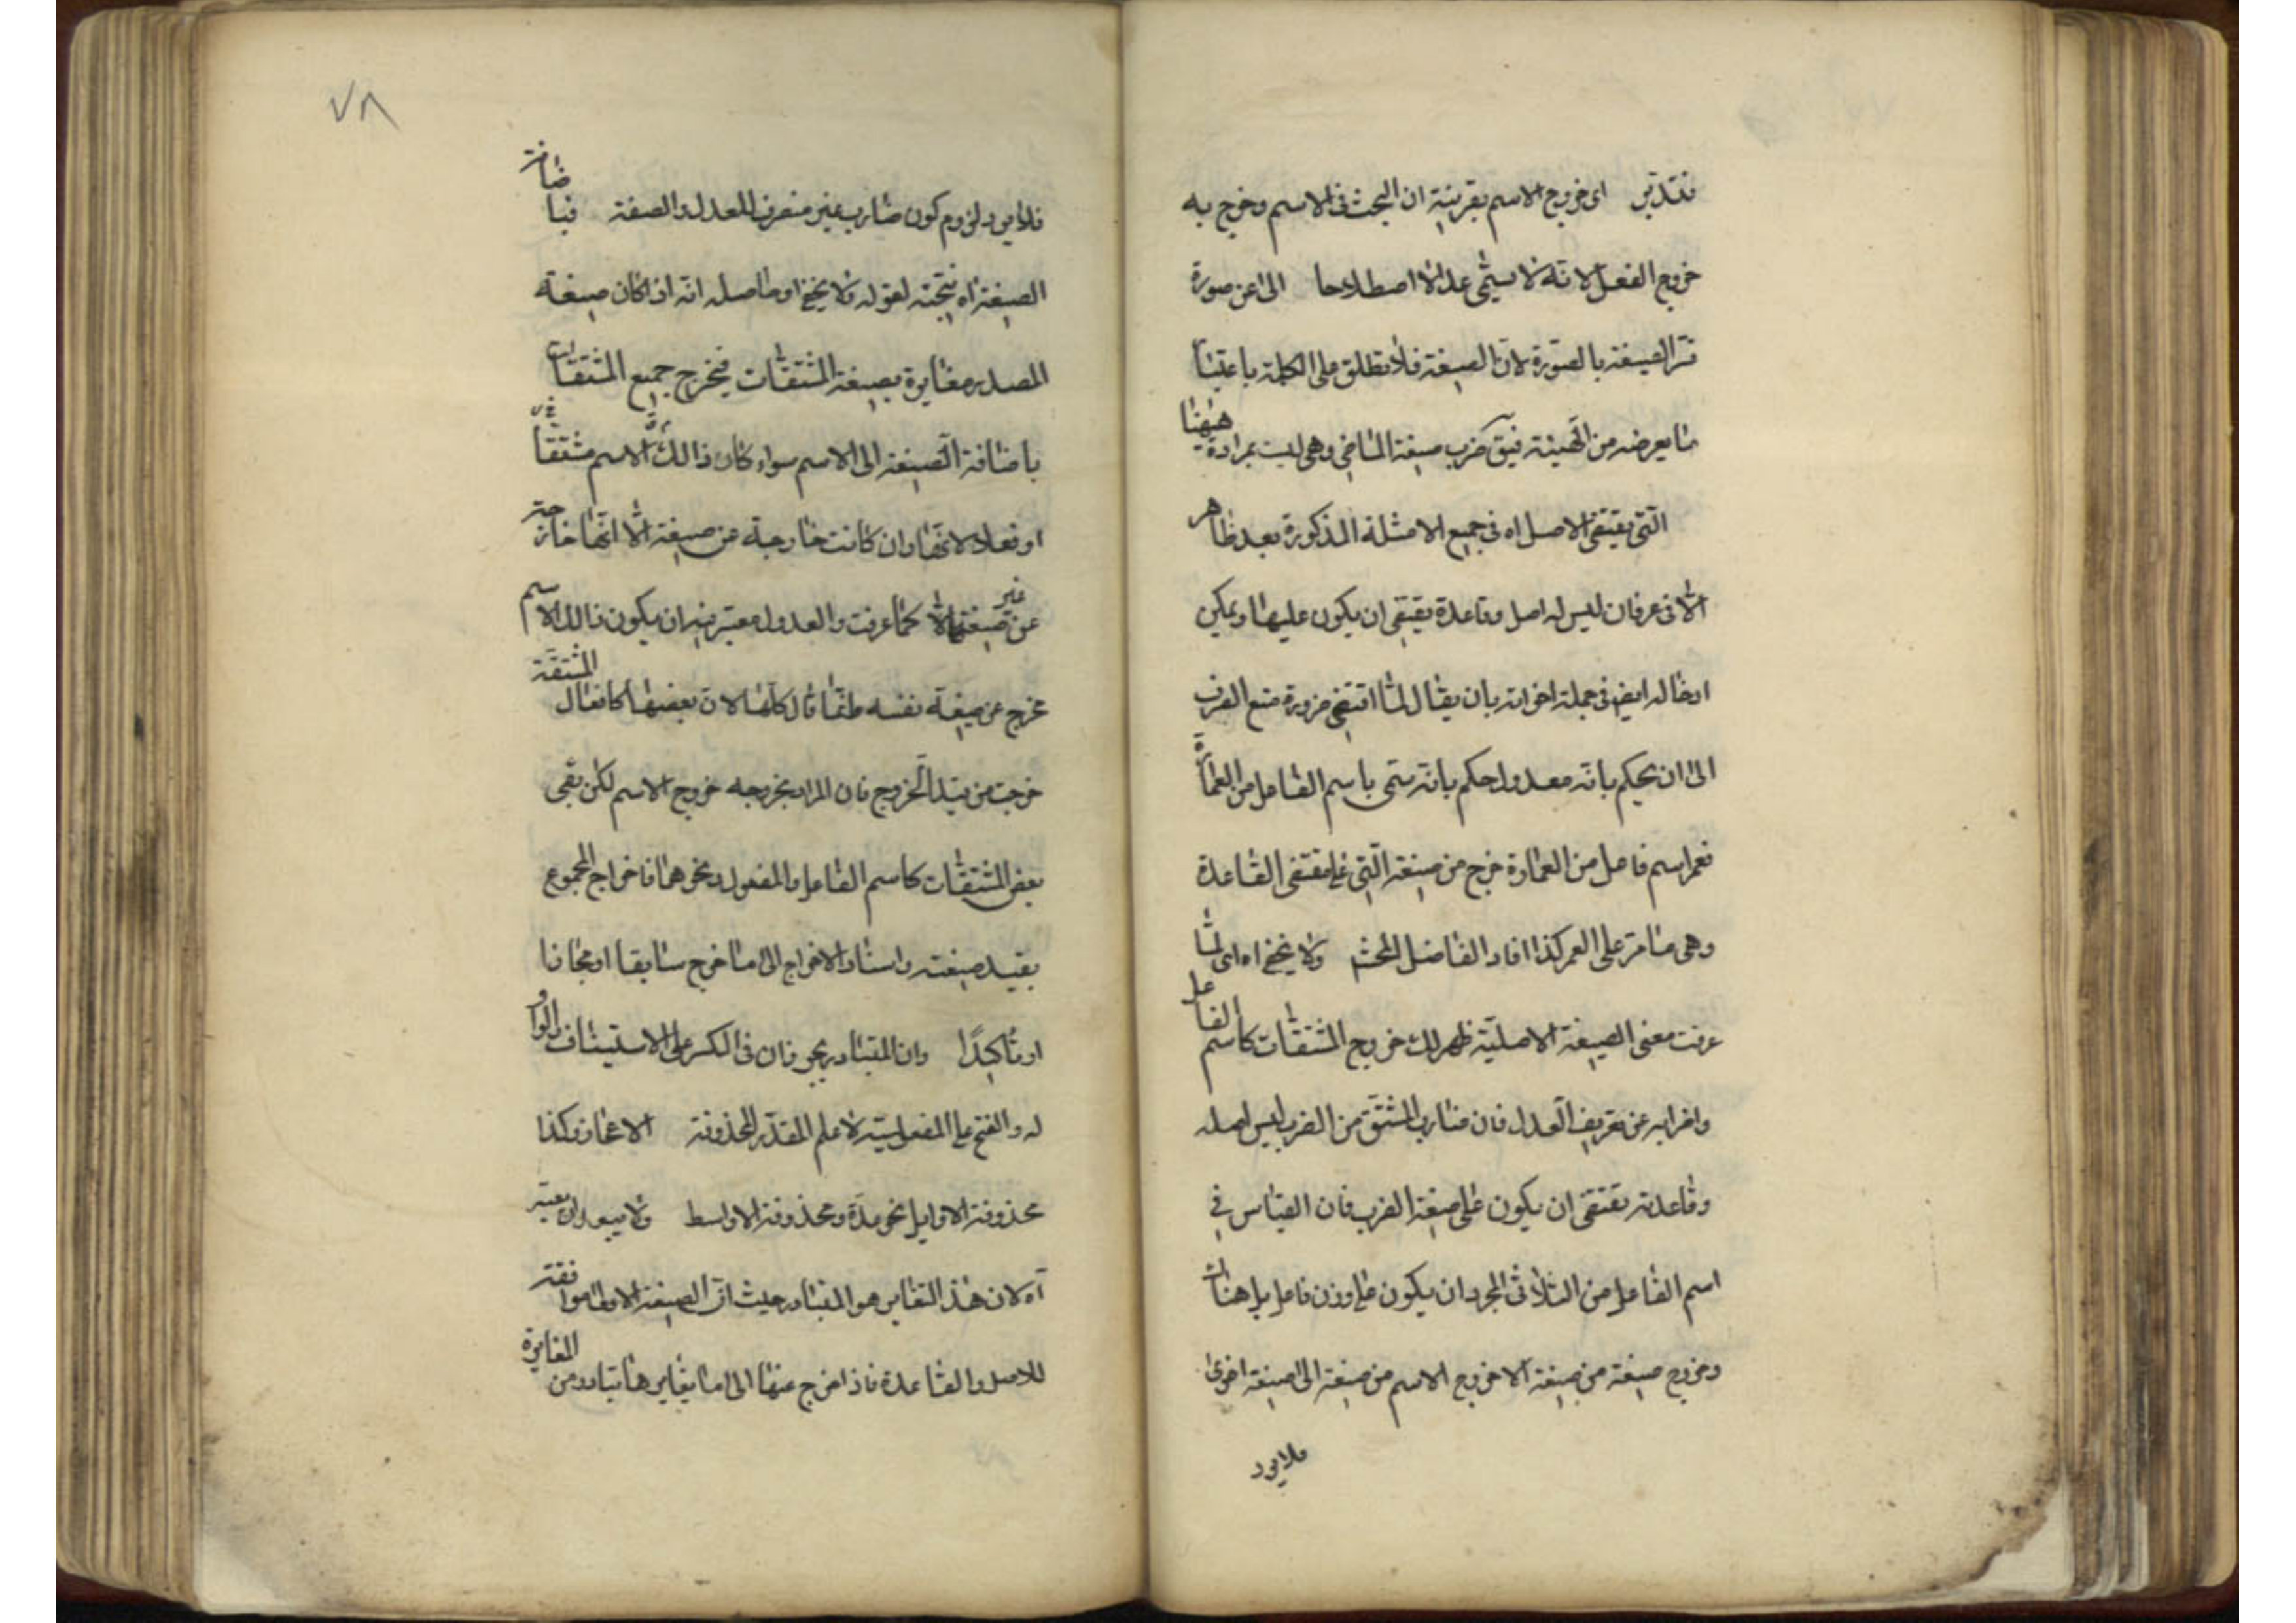 فتدبر اى خروج الاسم بقرينة ان البحث فى الاسم وخرج به
خروج الفعل لانه لا يسمى عدلا اصطلاحا الى عن صورة
فسر الصيغة بالصورة لان الصيغة قد تطلق على الكلمة باعتبار
ما يعرضه من الهيئة فيق ضرب صيغة الماضى وهى ليست بمرادة ههنا
التى يقتضى الاصل اه فى جميع الامثلة المذكورة بعد ظاهر
الا فى عرفان ليس له اصل وقاعدة يقتضى ان يكون عليها ويمكن
ادخاله ايض فى جملة اخواته بان يقال لما اقتضى ضرورة منع الصرف
الى ان يحكم بانه معدول حكم بانه سمى باسم الفاعل من العمارة
فعمر اسم فاعل من العمارة خرج من صيغة التى على مقتضى القاعدة
وهى عامر على العمر كذا افاد الفاضل المحشى ولا يخفى اه اى لما
عرفت معنى الصيغة الاصلية ظهر لك خروج المشتقات كاسم الفاعل
واضرابه عن تعريف العدل فان ضارب المشتق من الضرب ليس اصله
وقاعدته يقتضى ان يكون على صيغة الضرب فان القياس فى
اسم الفاعل من الثلاثى المجرد ان يكون على وزن فاعل بل هناك
وخروج صيغة من صيغة لا خروج الاسم من صيغة الى صيغة اخرى
فلا يرد
٧٨
فلا يرد لزوم كون ضارب غير منصرف للعدل والصفة فباضافة
الصيغة اه نتيجة لقوله ولا يخفى او حاصله انه اذا كان صيغة
المصدر مغايرة بصيغة المشتقات فيخرج جميع المشتقات
باضافة الصيغة الى الاسم سواء كان ذالك الاسم مشتقا
او فعلا لانها وان كانت خارجة عن صيغة الا انها خارجة
عن غير صيغتها كما عرفت والعدول معتبر فيه ان يكون ذالك الاسم
مخرج عن صيغة نفسه قال كلها لان بعضها كافعال المشتقة
خرجت من قيد الخروج فان المراد بخروجه خروج الاسم لكن بقى
بعض المشتقات كاسم الفاعل والمفعول ونحوهما فاخراج المجموع
بقيد صيغته واسناد الاخراج الى ما خرج سابقا او مجازا
او تاكيدًا وان المتبادر يجوز فان فى الكسر على الاستيناف والواو
له والفتح على المفعولية لاعلم المقدر المحذوفة الاعجاز وكذا
محذوفة الاوايل نحو عدة ومحذوفة الاواسط ولا يبعد ان يعتبر
آه لان هذ التغاير هو المتبادر حيث ان الصيغة الاولى موافقة
للاصل والقاعدة فاذا خرج عنها الى ما يغايرها يتبادر من المغايرة